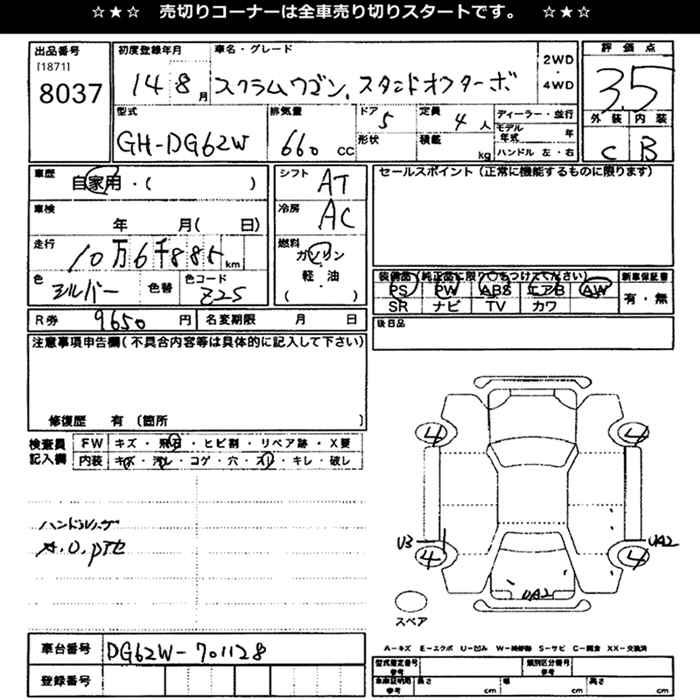 ☆★☆ 売切りコーナーは全車売り切りスタートです。 ☆★☆
出品番号 初度登録年月 車名・グレード 評価点
[1871] 14 8月 スクラムワゴン スタンドオフターボ 2WD・4WD 3.5
8037
型式 排気量 ドア 5 定員 4人 ディーラー・並行 外装 内装
GH-DG62W 660 CC 形状 積載 kg モデル年式 年 C B
ハンドル 左・右
車歴 自家用・( ) シフト AT セールスポイント(正常に機能するものに限ります)
車検 年 月( 日) 冷房 AC
走行 10万6千885km 燃料 ガソリン
軽・油
( )
色 シルバー 色替 色コード Z2S
装備品(純正品に限り○をつけてください) 新車保証書
PS PW ABS エアB AW 有・無
SR ナビ TV カワ
R券 9650円 名変期限 月 日 後日品
注意事項申告欄(不具合内容等は具体的に記入して下さい)
修復歴 有(箇所 )
検査員記入欄 FW キズ・飛石・ヒビ割・リペア跡・X要
内装 キズ・汚レ・コゲ・穴・スレ・キレ・破レ
4 4
A.O.P
U3 4 4 UA2
UA2
スペア
車台番号 DG62W-701128
登録番号
A-キズ E-エクボ U-凹み W-補修跡 S-サビ C-腐食 XX-交換済
型式指定番号 参考 類別区分番号 参考
車庫証明用 参考 長さ cm 幅 cm 高さ cm